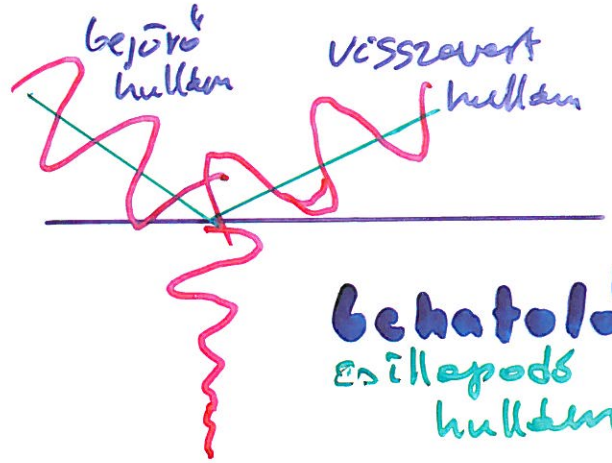 bejövő
hullám
visszavert
hullám
behatoló
csillapodó
hullám